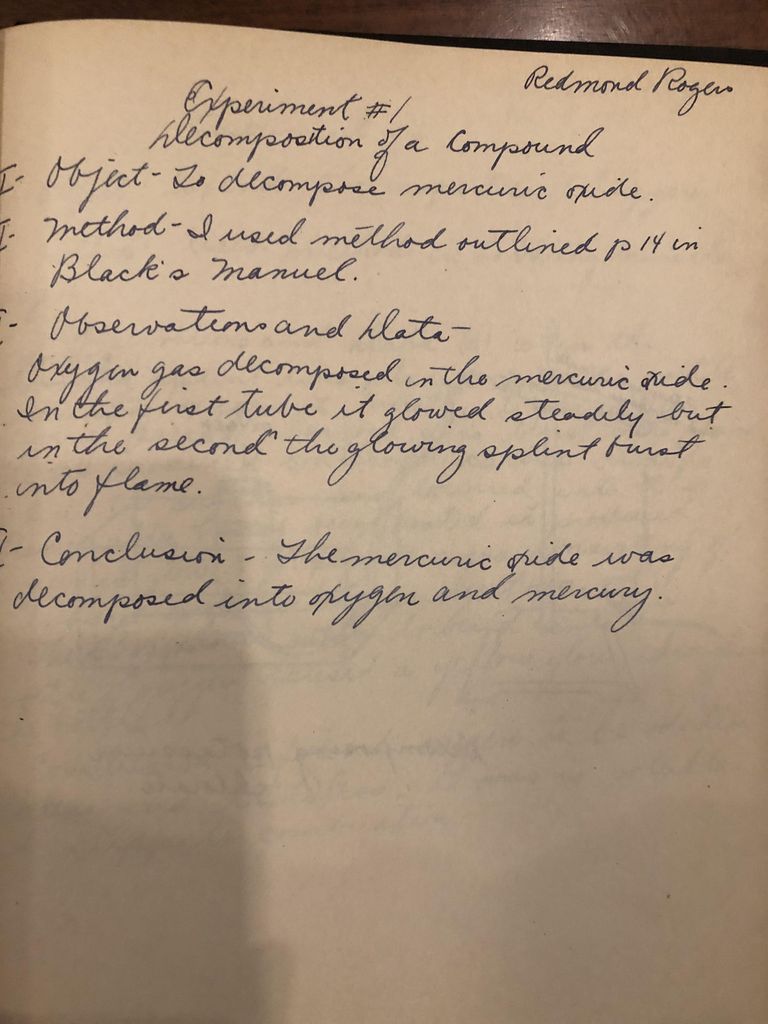 Redmond Rogers
Experiment #1
Decomposition of a Compound
I- Object- To decompose mercuric oxide.
I- Method- I used method outlined p 14 in
Black's Manuel.
I- Observations and Data-
Oxygen gas decomposed in the mercuric oxide.
In the first tube it glowed steadily but
in the second the glowing splint burst
into flame.
I- Conclusion - The mercuric oxide was
decomposed into oxygen and mercury.